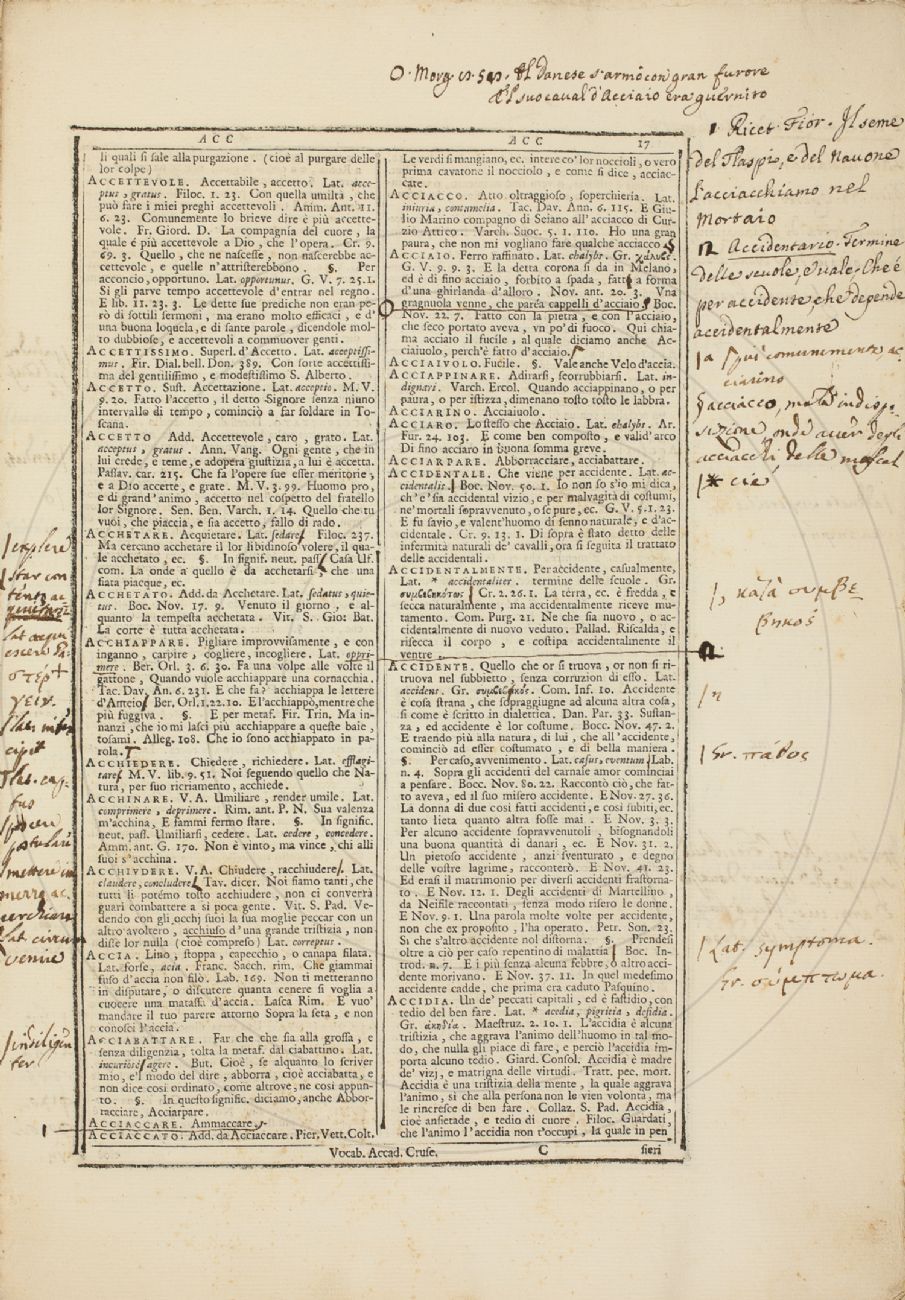 O. Morg. Il Danese s'armò con gran furore
E'l suo caval d'Acciaio era guernito
A C C
li quali si sale alla purgazione. (cioè al purgare delle
lor colpe)
ACCETTEVOLE. Accettabile, accetto. Lat. acce-
ptus, gratus. Filoc. 1. 23. Con quella umiltà, che
può fare i miei preghi accettevoli. Amm. Ant. 11.
6. 23. Comunemente lo brieve dire è più accette-
vole. Fr. Giord. D. La compagnía del cuore, la
quale é più accettevole a Dio, che l'opera. Cr. 9.
69. 3. Quello, che ne nascesse, non nascerebbe ac-
cettevole, e quelle n'attristerebbono. §. Per
acconcio, opportuno. Lat. opportunus. G. V. 7. 25. 1.
Si gli parve tempo accettevole d'entrar nel regno.
E lib. 11. 23. 3. Le dette sue prediche non eran pe-
rò di sottili sermoni, ma erano molto efficaci, e d'
una buona loquela, e di sante parole, dicendole mol-
to dubbiose, e accettevoli a commuover genti.
ACCETTISSIMO. Superl. d'Accetto. Lat. acceptissi-
mus. Fir. Dial. bell. Don. 389. Con sorte accettissi-
ma del gentilissimo, e modestissimo S. Alberto.
ACCETTO. Sust. Accettazione. Lat. acceptio. M. V.
9. 20. Fatto l'accetto, il detto Signore senza niuno
intervallo di tempo, cominciò a far soldare in To-
scana.
ACCETTO Add. Accettevole, caro, grato. Lat.
acceptus, gratus. Ann. Vang. Ogni gente, che in
lui crede, e teme, e adopera giustizia, a lui è accetta.
Passav. car. 215. Che fa l'opere sue esser meritorie,
e a Dio accette, e grate. M. V. 3. 99. Huomo pro,
e di grand'animo, accetto nel cospetto del fratello
lor Signore. Sen. Ben. Varch. 1. 14. Quello che tu
vuoi, che piaccia, e sia accetto, fallo di rado.
ACCHETARE. Acquietare. Lat. sedare. Filoc. 237.
Ma cercano acchetare il lor libidinoso volere, il qua-
le acchetato, ec. §. In signif. neut. pass. Casa Uf.
com. La onde a quello è da acchetarsi, che una
fiata piacque, ec.
ACCHETATO. Add. da Acchetare. Lat. sedatus, quie-
tus. Boc. Nov. 17. 9. Venuto il giorno, e al-
quanto la tempesta acchetata. Vit. S. Gio: Bat.
La corte è tutta acchetata.
ACCHIAPPARE. Pigliare improvvisamente, e con
inganno, carpire, cogliere, incogliere. Lat. oppri-
mere. Ber. Orl. 3. 6. 30. Fa una volpe alle volte il
gattone, Quando vuole acchiappare una cornacchia.
Tac. Dav. An. 6. 231. E che fa? acchiappa le lettere
d'Anteio. Ber. Orl. 1. 22. 10. E l'acchiappò, mentre che
più fuggiva. §. E per metaf. Fir. Trin. Ma in-
nanzi, che io mi lasci più acchiappare a queste baie,
tosami. Alleg. 108. Che io sono acchiappato in pa-
rola.
ACCHIEDERE. Chiedere, richiedere. Lat. efflagi-
tare. M. V. lib. 9. 51. Noi seguendo quello che Na-
tura, per suo ricriamento, acchiede.
ACCHINARE. V. A. Umiliare, render umile. Lat.
comprimere, deprimere. Rim. ant. P. N. Sua valenza
m'acchina, E fammi fermo stare. §. In signific.
neut. pass. Umiliarsi, cedere. Lat. cedere, concedere.
Amm. ant. G. 170. Non è vinto, ma vince, chi alli
suoi s'acchina.
ACCHIVDERE. V. A. Chiudere, racchiudere. Lat.
claudere, concludere. Tav. dicer. Noi siamo tanti, che
tutti li potémo tosto acchiudere, non ci converrà
guari combattere a si poca gente. Vit. S. Pad. Ve-
dendo con gli occhj suoi la sua moglie peccar con un
altro avoltero, acchiuso d'una grande tristizia, non
disse lor nulla (cioè compreso) Lat. correptus.
ACCIA. Lino, stoppa, capecchio, o canapa filata.
Lat. forse, acia. Franc. Sacch. rim. Che giammai
fuso d'accia non filò. Lab. 169. Non ti metteranno
in disputare, o discutere quanta cenere si voglia a
cuocere una matassa d'accia. Lasca Rim. E vuo'
mandare il tuo parere attorno Sopra la seta, e non
conosci l'accia.
ACCIABATTARE. Far che che sia alla grossa, e
senza diligenzia, tolta la metaf. dal ciabattino. Lat.
incuriosè agere. But. Cioè, se alquanto lo scriver
mio, e'l modo del dire, abborra, cioè acciabatta, e
non dice così ordinato, come altrove, ne così appun-
to. §. In questo signific. diciamo, anche Abbor-
racciare, Acciarpare.
ACCIACCARE. Ammaccare.
ACCIACCATO. Add. da Acciaccare. Pier. Vett. Colt.
A C C 17
Le verdi si mangiano, ec. intere co' lor noccioli, o vero
prima cavatone il nocciolo, e come si dice, acciac-
cate.
ACCIACCO. Atto oltraggioso, soperchieria. Lat.
iniuria, contumelia. Tac. Dav. Ann. 6. 115. E Giu-
lio Marino compagno di Seiano all'acciacco di Cur-
zio Attico. Varch. Suoc. 5. 1. 110. Ho una gran
paura, che non mi vogliano fare qualche acciacco.
ACCIAIO. Ferro raffinato. Lat. chalybs. Gr. χάλυψ.
G. V. 9. 9. 3. E la detta corona si da in Melano,
ed è di fino acciaio, forbito a spada, fatta a forma
d'una ghirlanda d'alloro, Nov. ant. 20. 3. Vna
gragnuola venne, che parea cappelli d'acciaio. Boc.
Nov. 22. 7. Fatto con la pietra, e con l'acciaio,
che seco portato aveva, vn po' di fuoco. Qui chia-
ma acciaio il fucile, al quale diciamo anche Ac-
ciaiuolo, perch'è fatto d'acciaio.
ACCIAIVOLO. Fucile. §. Vale anche Velo d'accia.
ACCIAPPINARE. Adirarsi, scorrubbiarsi. Lat. in-
dignari. Varch. Ercol. Quando acciappinano, o per
paura, o per istizza, dimenano tosto tosto le labbra.
ACCIARINO. Acciaiuolo.
ACCIARO. Lo stesso che Acciaio. Lat. chalybs. Ar.
Fur. 24. 103. E come ben composto, e valid'arco
Di fino acciaro in buona somma greve.
ACCIARPARE. Abborracciare, acciabattare.
ACCIDENTALE. Che viene per accidente. Lat. ac-
cidentalis. Boc. Nov. 50. 1. Io non so s'io mi dica,
ch'e' sia accidental vizio, e per malvagità di costumi,
ne' mortali sopravvenuto, o se pure, ec. G. V. 5. 1. 23.
E fu savio, e valent'huomo di senno naturale, e d'ac-
cidentale. Cr. 9. 13. 1. Di sopra è stato detto delle
infermità naturali de' cavalli, ora si seguita il trattato
delle accidentali.
ACCIDENTALMENTE. Per accidente, casualmente,
Lat. * accidentaliter. termine delle scuole. Gr.
συμβεβηκότως. Cr. 2. 26. 1. La terra, ec. è fredda, e
secca naturalmente, ma accidentalmente riceve mu-
tamento. Com. Purg. 21. Ne che sia nuovo, o ac-
cidentalmente di nuovo veduto. Pallad. Riscalda, e
risecca il corpo, e costipa accidentalmente il
ventre.
ACCIDENTE. Quello che or si truova, or non si ri-
truova nel subbietto, senza corruzion di esso. Lat.
accidens. Gr. συμβεβηκός. Com. Inf. 10. Accidente
è cosa strana, che sopraggiugne ad alcuna altra cosa,
si come è scritto in dialettica. Dan. Par. 33. Sustan-
za, ed accidente è lor costume. Bocc. Nov. 47. 2.
E traendo più alla natura di lui, che all'accidente,
cominciò ad esser costumato, e di bella maniera.
§. Per caso, avvenimento. Lat. casus, eventum. Lab.
n. 4. Sopra gli accidenti del carnale amor cominciai
a pensare. Bocc. Nov. 80. 22. Raccontò ciò, che fat-
to aveva, ed il suo misero accidente. E Nov. 27. 36.
La donna di due così fatti accidenti, e così subiti, ec.
tanto lieta quanto altra fosse mai. E Nov. 3. 3.
Per alcuno accidente sopravvenutoli, bisognandoli
una buona quantità di danari, ec. E Nov. 31. 2.
Un pietoso accidente, anzi sventurato, e degno
delle vostre lagrime, racconterò. E Nov. 41. 23.
Ed erasi il matrimonio per diversi accidenti frastorna-
to. E Nov. 12. 1. Degli accidenti di Martellino,
da Neifile raccontati, senza modo risero le donne.
E Nov. 9. 1. Una parola molte volte per accidente,
non che ex proposito, l'ha operato. Petr. Son. 23.
Si che s'altro accidente nol distorna. §. Prendesi
oltre a ciò per caso repentino di malattia. Boc. In-
trod. n. 7. E i più senza alcuna febbre, o altro acci-
dente morivano. E Nov. 37. 11. In quel medesimo
accidente cadde, che prima era caduto Pasquino.
ACCIDIA. Un de' peccati capitali, ed è fastidio, con
tedio del ben fare. Lat. * acedia, pigritia, desidia.
Gr. ἀκηδία. Maestruz. 2. 10. 1. L'accidia è alcuna
tristizia, che aggrava l'animo dell'huomo in tal mo-
do, che nulla gli piace di fare, e perciò l'accidia im-
porta alcuno tedio. Giard. Consol. Accidia è madre
de' vizj, e matrigna delle virtudi. Tratt. pec. mort.
Accidia è una tristizia della mente, la quale aggrava
l'animo, si che alla persona non le vien volontà, ma
le rincresce di ben fare. Collaz. S. Pad. Accidia,
cioè ansietade, e tedio di cuore. Filoc. Guardati,
che l'animo l'accidia non t'occupi, la quale in pen
Vocab. Accad. Cruse. C sieri
explere
star con
tento ac
Lat. acqui
escere Gr.
στέρ
γειν
Lat. inter
cipit
Lat. cap
tus
postulare
mettere in
mezzo ac
cerchiare
Lat. circum
venire
indiligen
ter
1 Ricet. Fior. Il seme
del Tlaspi, e del Navone
l'acciacchiamo nel
mortaio
n Accidentario. Termine
delle scuole, e vale, Che è
per accidente, che depende
accidentalmente
a qui comunemente ac
ciarino
§ acciacco, mala indisp-
sizione, onde aver degli
acciacchi
* cia
κατὰ συμβε
βηκός
n
Gr. πάθος
Lat. symptoma.
Gr. σύμπτωμα.